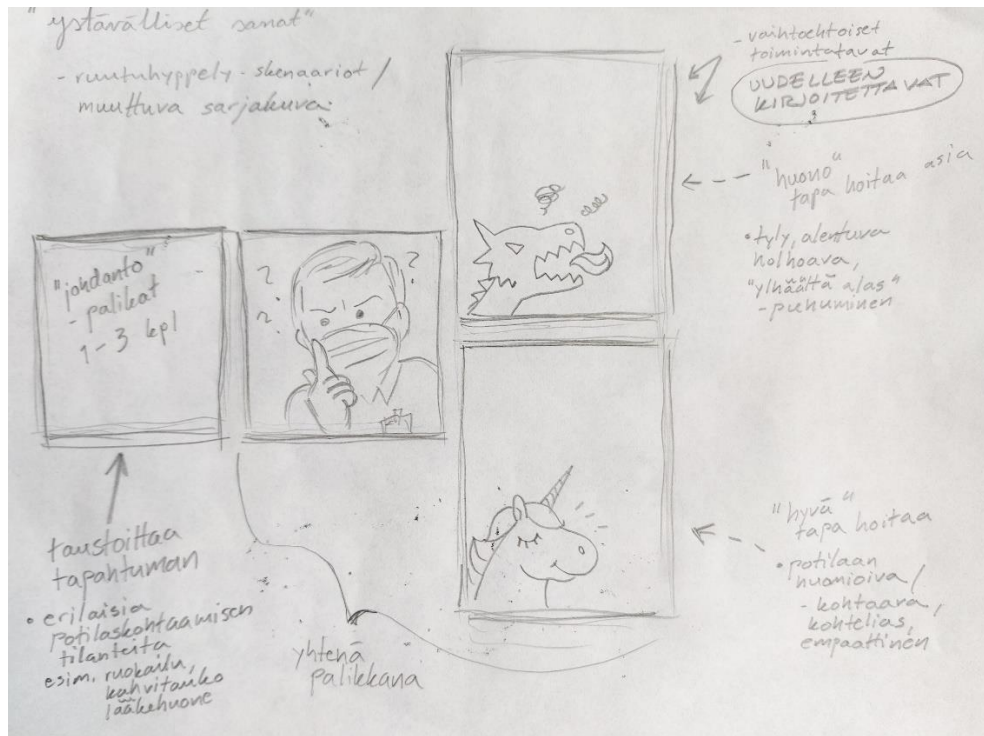 "ystävälliset sanat"
- ruutuhyppely - skenaariot /
muuttuva sarjakuva
- vaihtoehtoiset
toimintatavat
UUDELLEEN
KIRJOITETTAVAT
"huono"
tapa hoitaa asia
• tyly, alentuva
holhoava,
"ylhäältä alas"
- puhuminen
"johdanto"
- palikat
1-3 kpl
? ?
?
taustoittaa
tapahtuman
• erilaisia
potilaskohtaamisen
tilanteita
esim. ruokailu,
kahvitauko
lääkehuone
yhtenä
palikkana
"hyvä"
tapa hoitaa
• potilaan
huomioiva /
- kohtaava,
kohtelias,
empaattinen